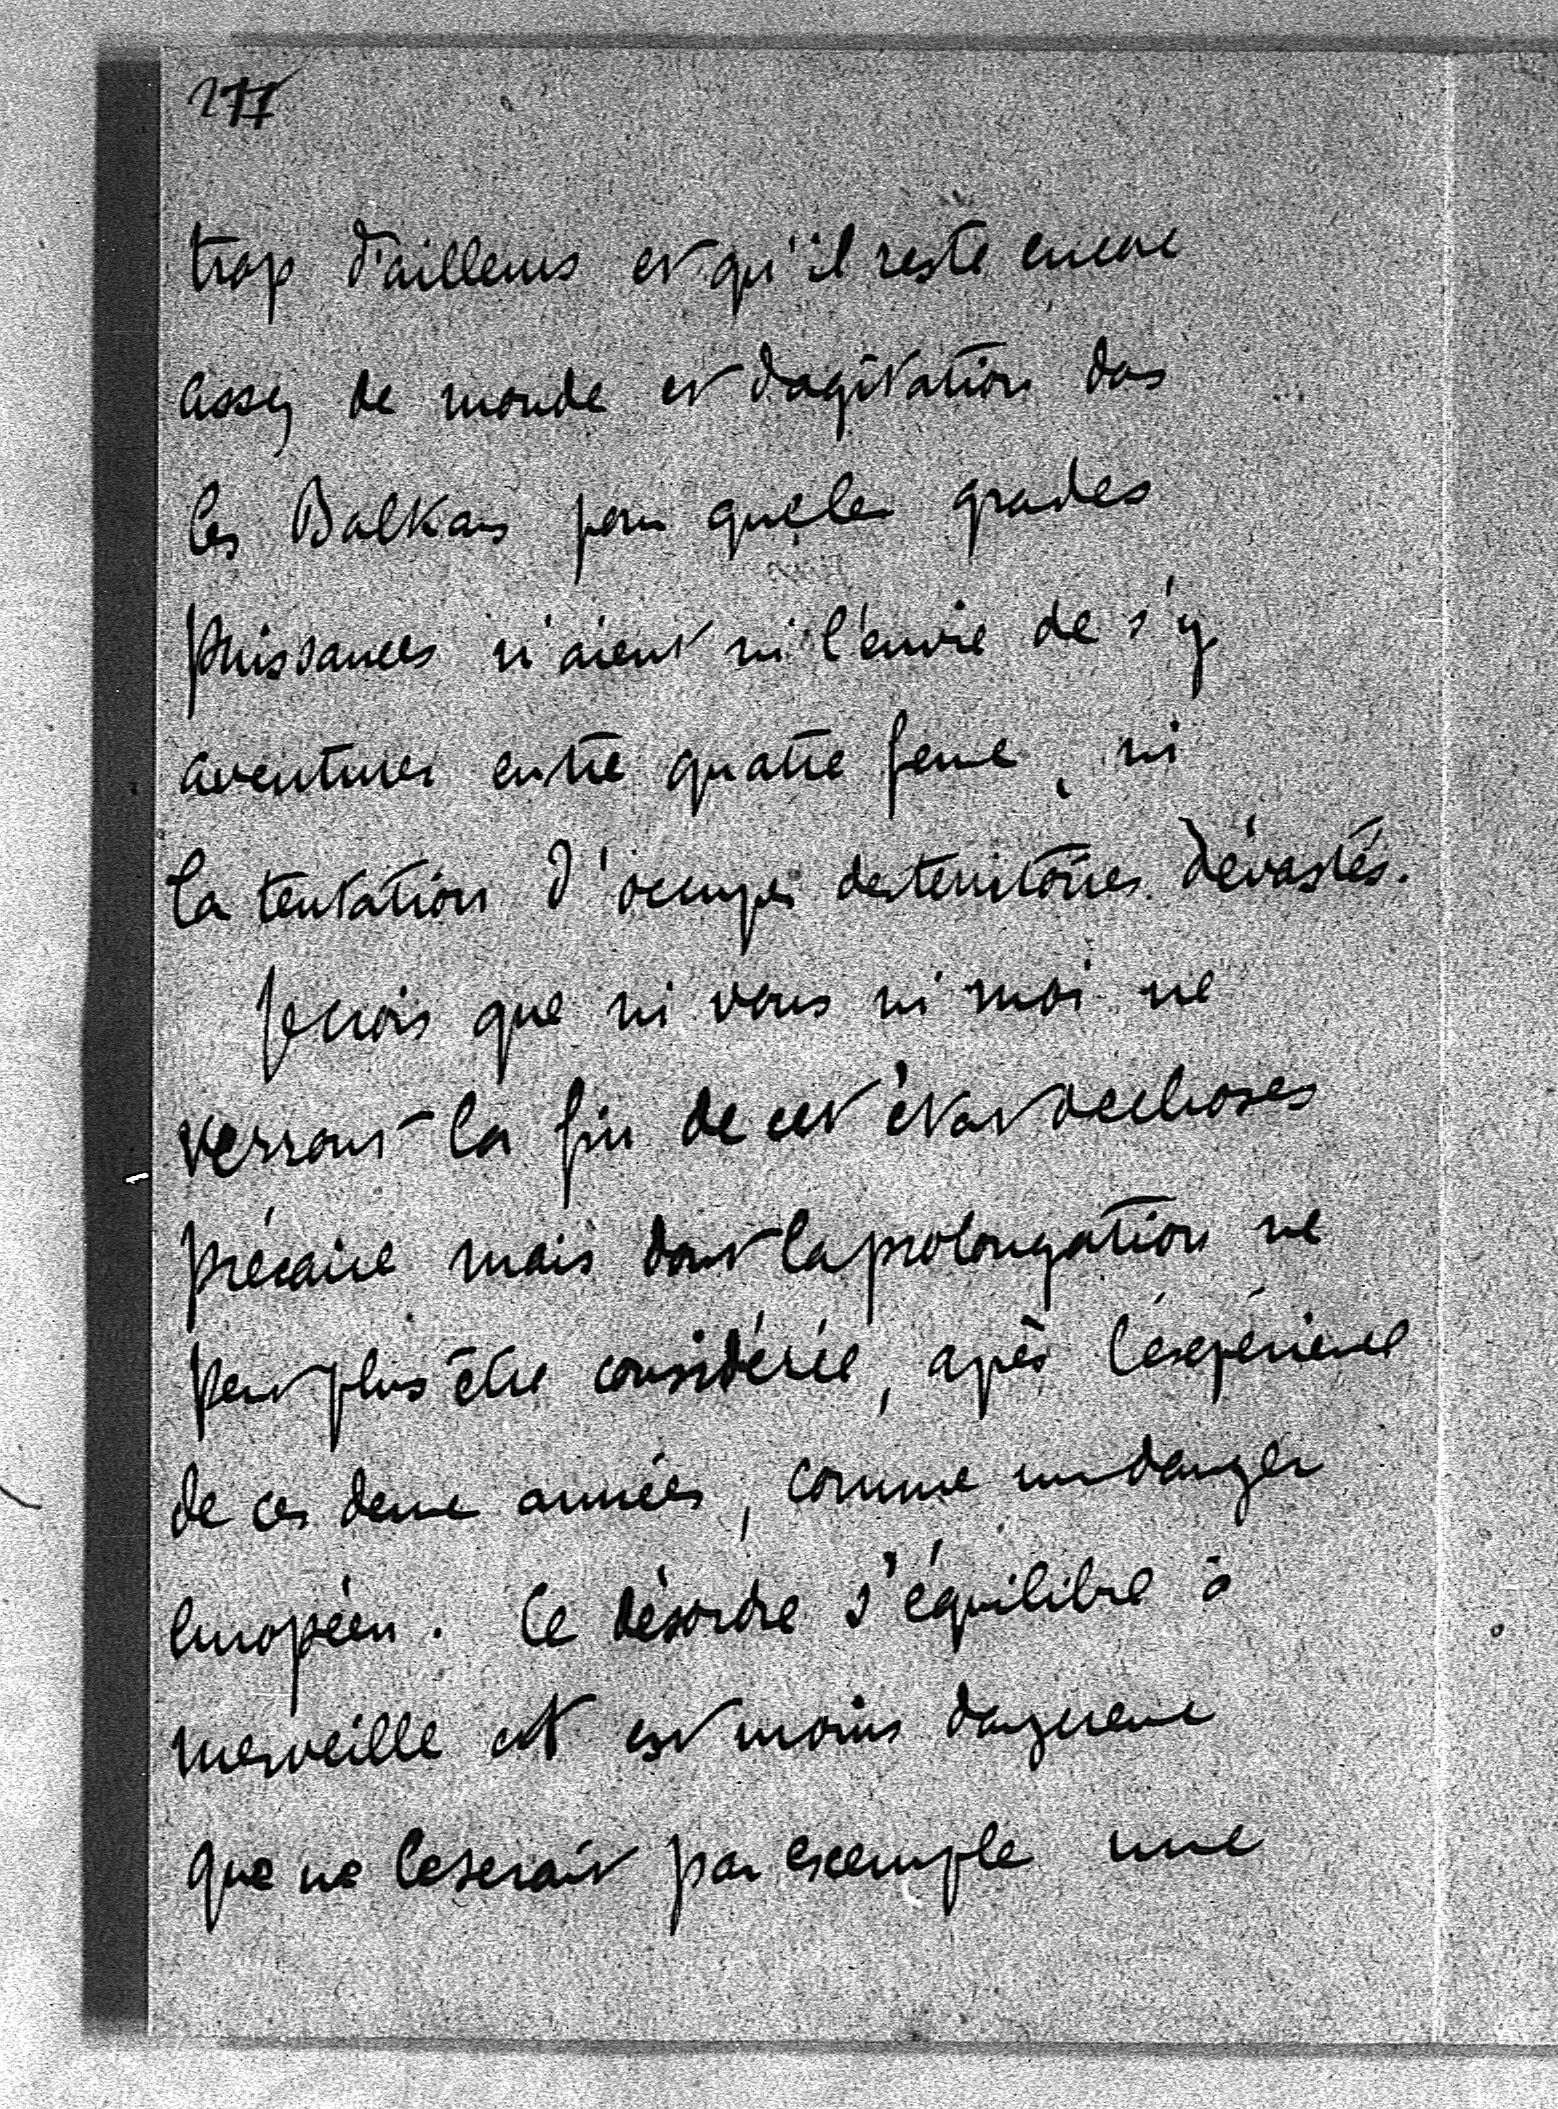 277
trop d'ailleurs et qu'il reste encore
assez de monde et d'agitation dans
les Balkans pour que les grandes
puissances n'aient ni l'envie de s'y
aventurer entre quatre feux, ni
la tentation d'occuper des territoires dévastés.
Je crois que ni vous ni moi ne
verrons la fin de cet état de choses
précaire mais dont la prolongation ne
peut plus être considérée, après l'expérience
de ces deux années, comme un danger
européen. Ce désordre s'équilibre à
merveille et est moins dangereux
que ne le serait par exemple une